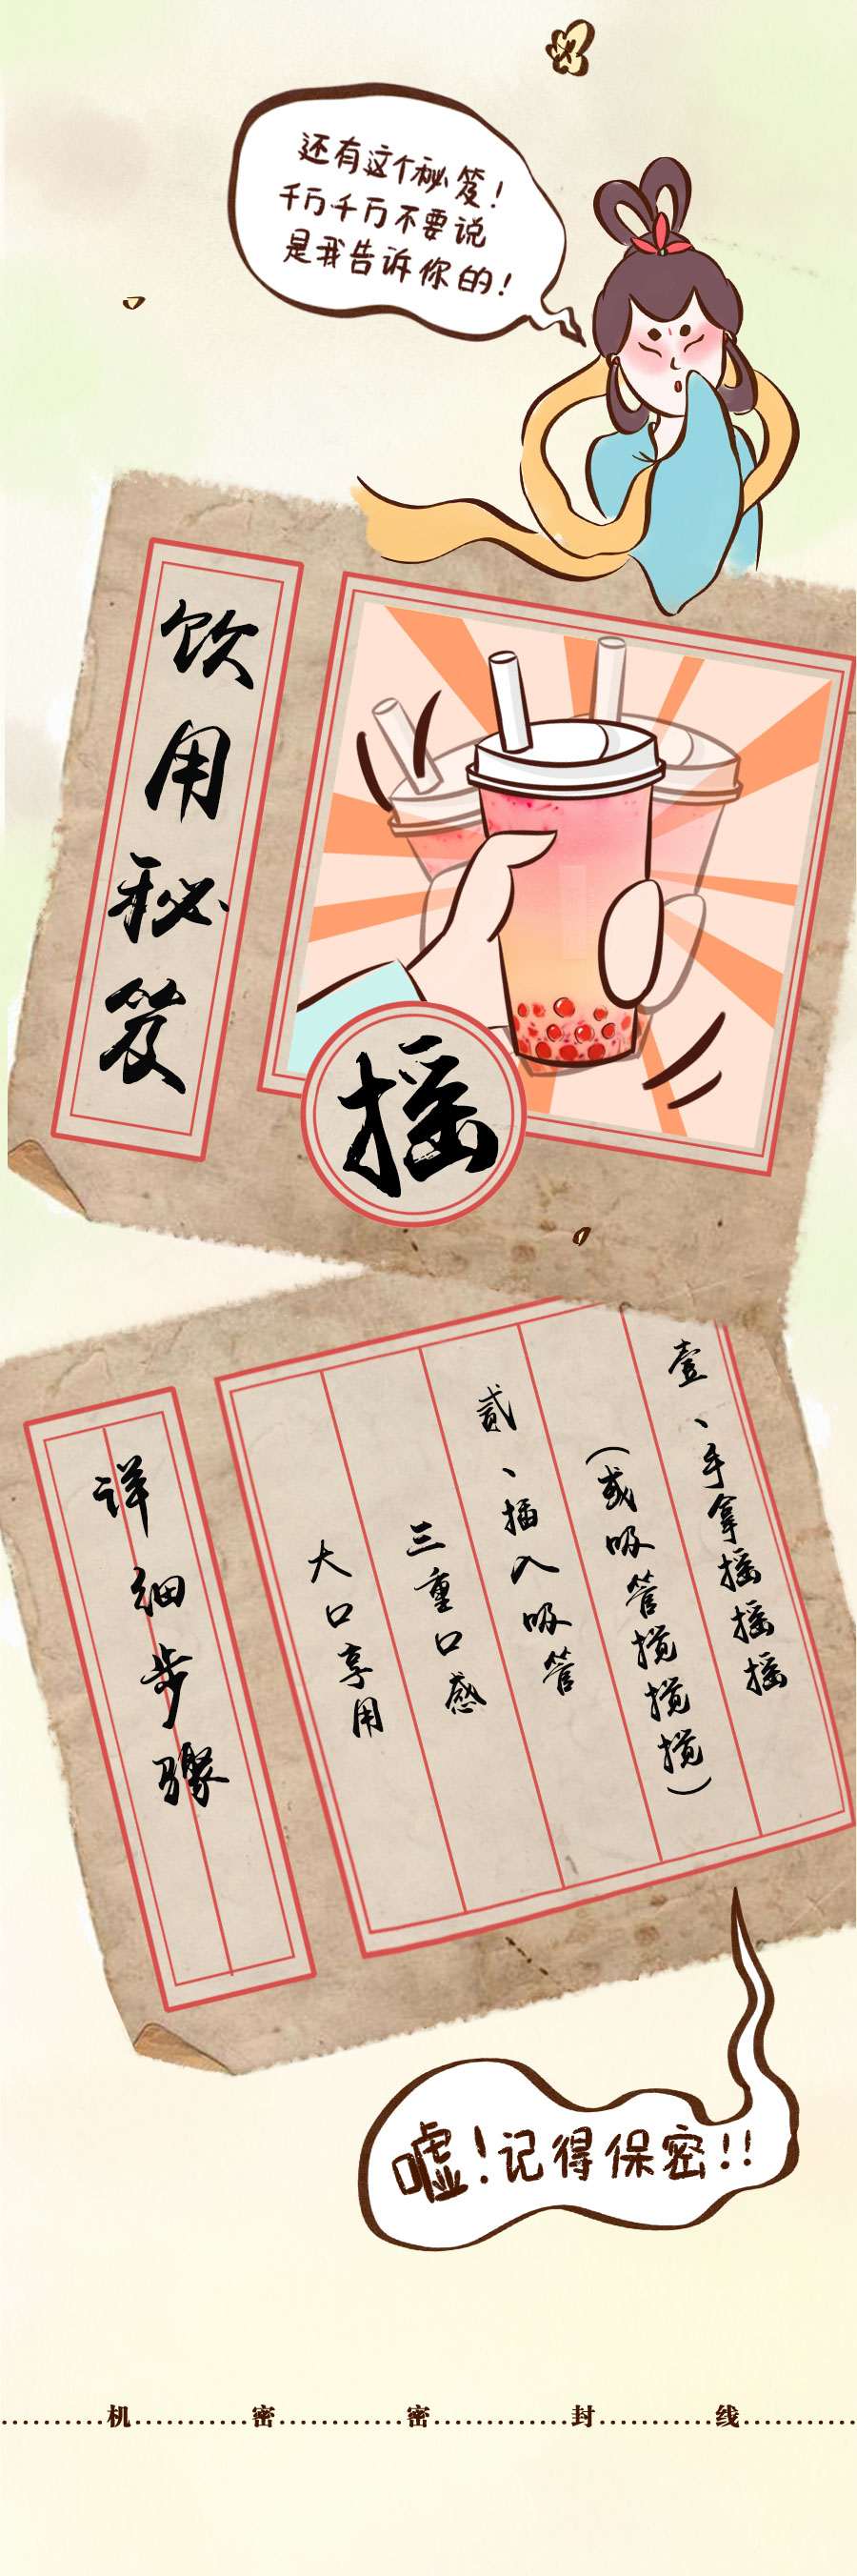 还有这个秘笈！
千万千万不要说
是我告诉你的！
饮用秘笈
摇
详细步骤
壹、手拿摇摇摇
（或吸管搅搅搅）
贰、插入吸管
三重口感
大口享用
嘘！记得保密！！
机密密封线